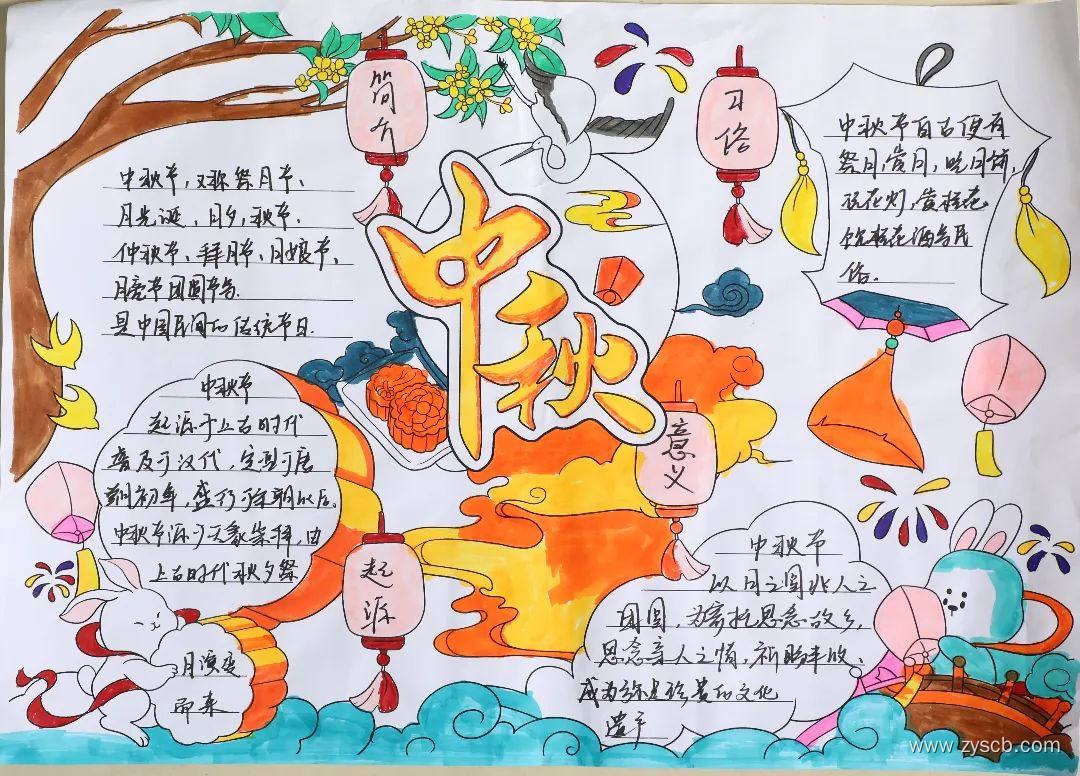 简介
中秋节,又称祭月节、
月光诞、月夕,秋节、
仲秋节、拜月节、月娘节、
月亮节团圆节等.
是中国民间的传统节日.
中秋
习俗
中秋节自古便有
祭月,赏月,吃月饼,
玩花灯,赏桂花
饮桂花酒等民
俗.
中秋节
起源于上古时代
普及于汉代,定型于唐
朝初年,盛行于宋朝以后.
中秋节源于天象崇拜,由
上古时代秋夕祭
月演变
而来
起源
意义
中秋节
以月之圆兆人之
团圆,为寄托思念故乡,
思念亲人之情,祈盼丰收、
成为弥足珍贵的文化
遗产
www.zyscb.com